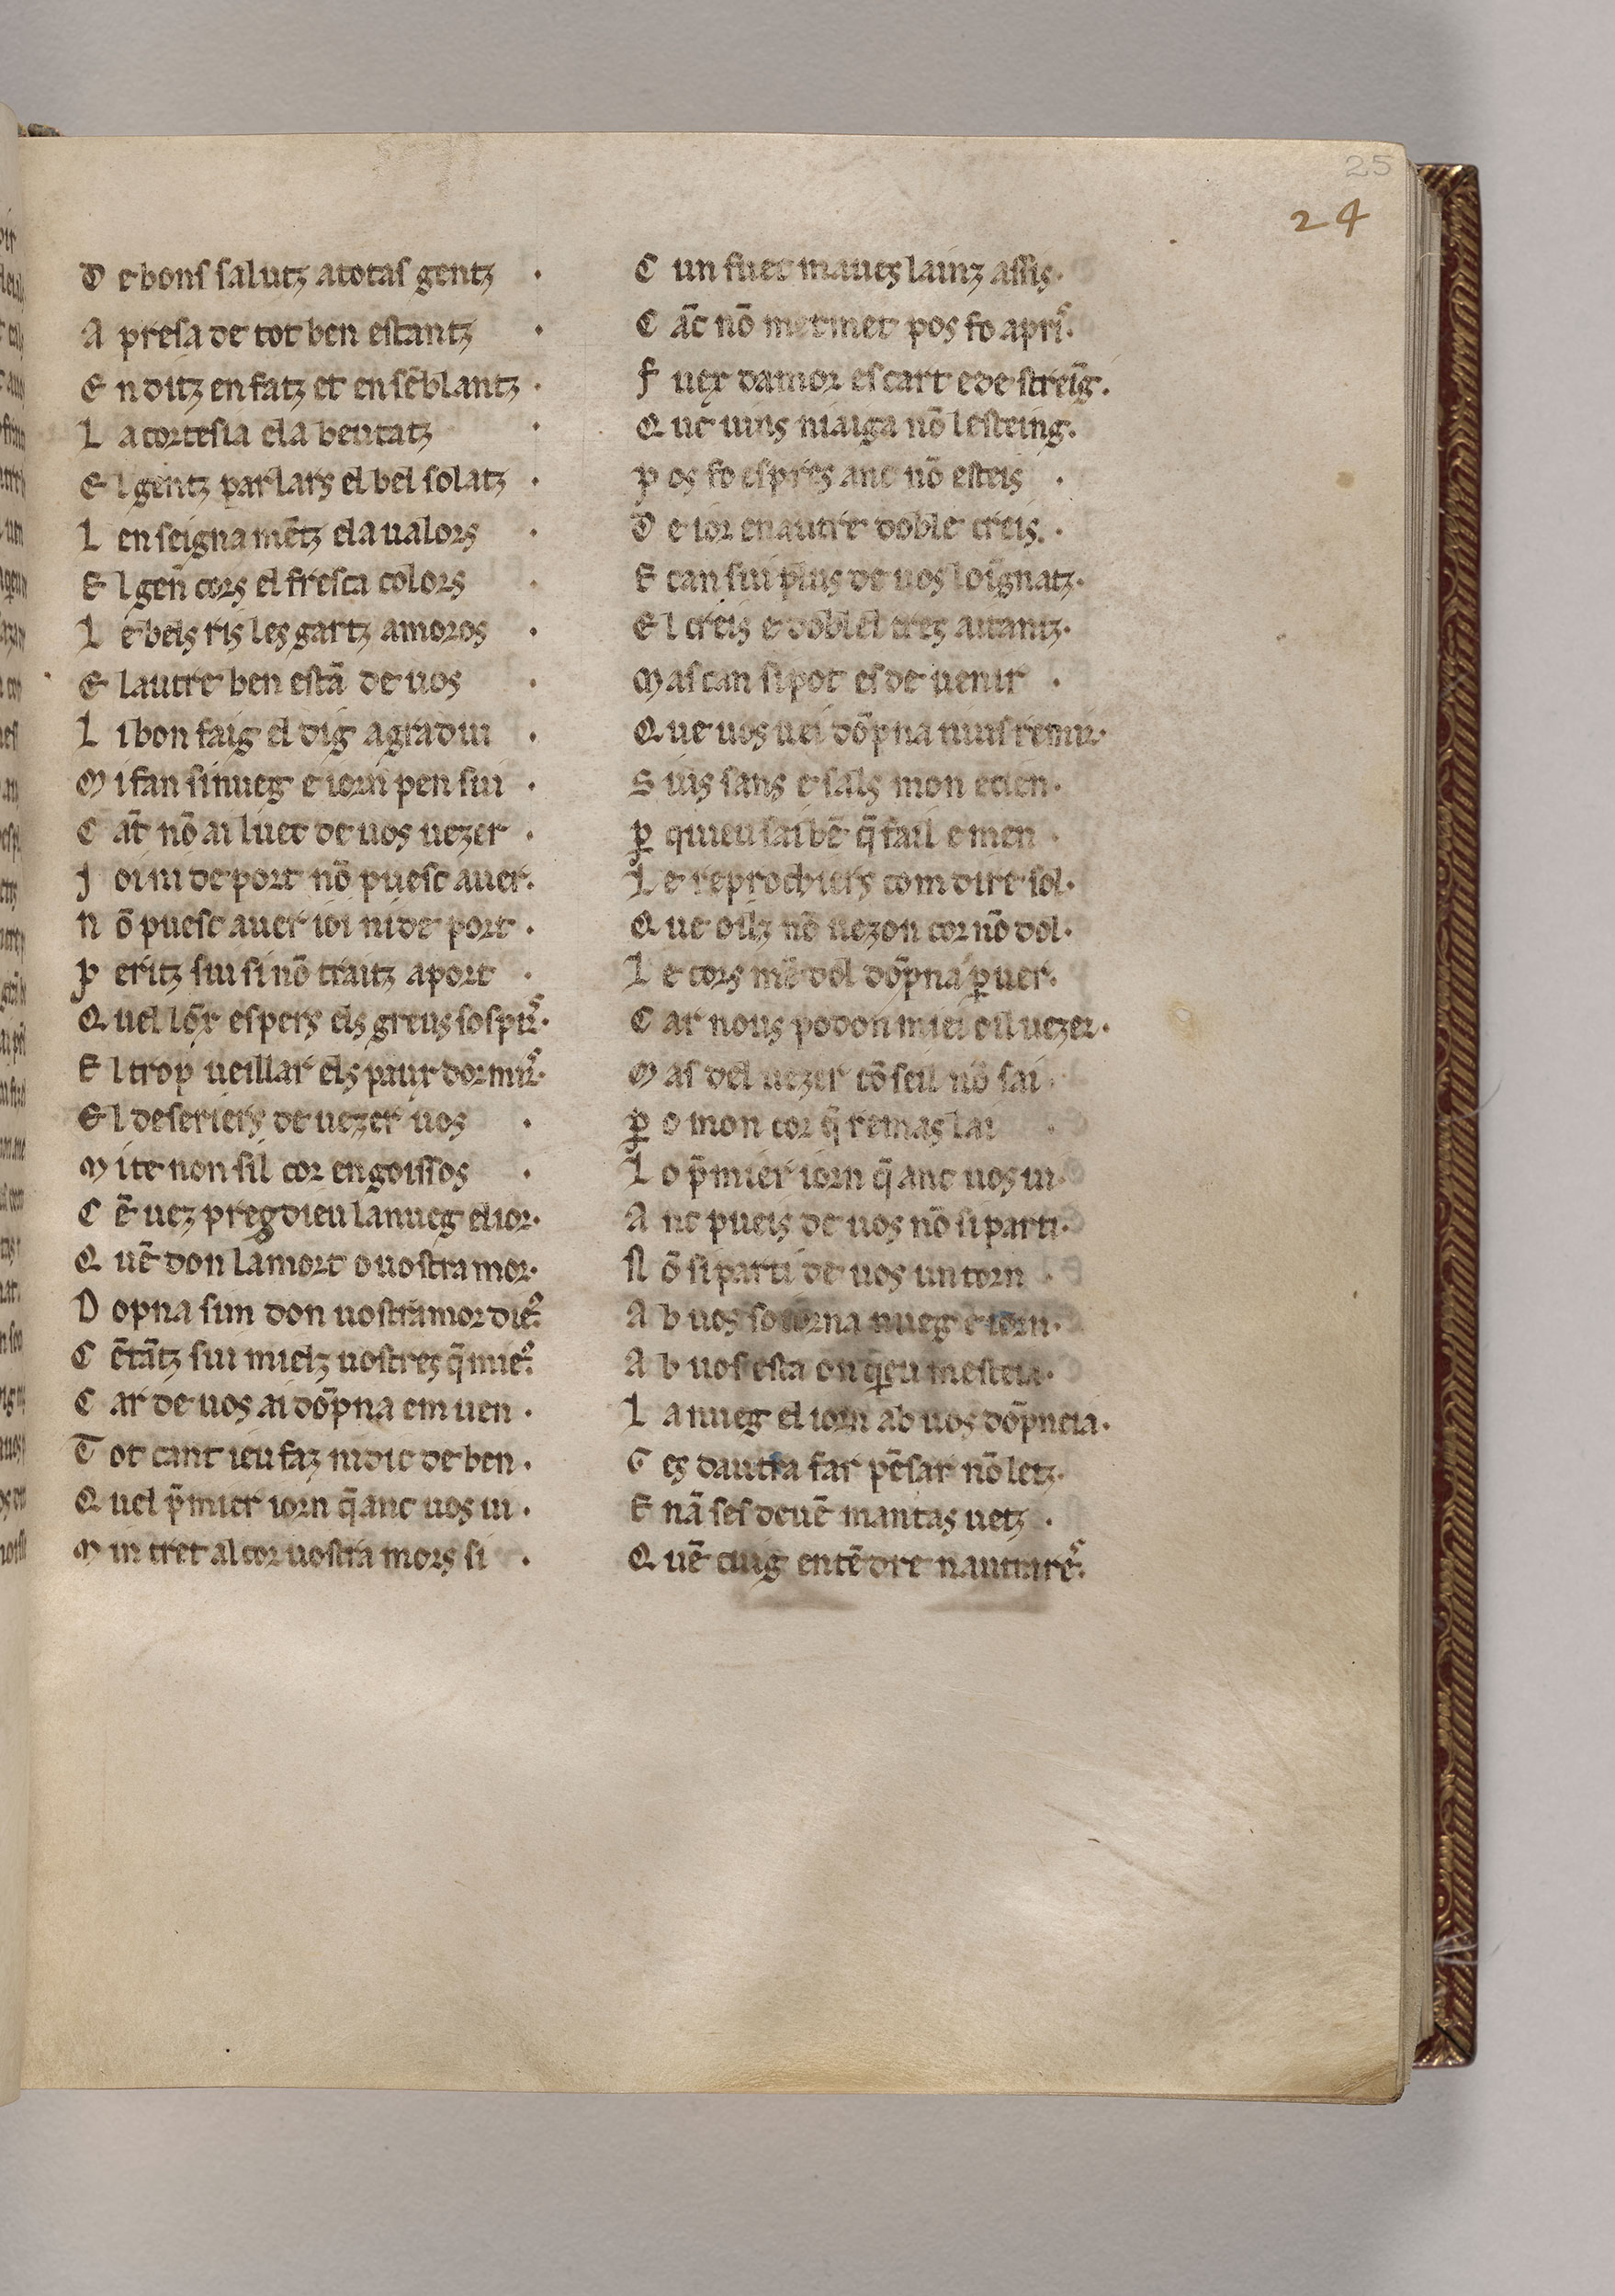 25
24
D e bons salutz atotas gentz ·
A presa de tot ben estantz ·
E n ditz en fatz et en sēblantz ·
L a cortesia ela beutatz ·
E l gentz parlars el bel solatz ·
L en seignamētz ela ualors ·
E l gen̄ cors el fresca colors ·
L e bels ris les gartz amoros ·
E lautre ben estā de uos ·
L i bon faig el dig agradiu ·
M i fan si nueg e iorn pensiu ·
C at̄ nō ai luec de uos uezer ·
J oi ni deport nō puesc auer ·
N ō puesc auer ioi ni deport ·
P eritz siu si nō traitz a port ·
Q uel lōr espers els greus sospirs ·
E l trop ueillar els paur dormirs ·
E l deseriers de uezer uos ·
M i te non sil cor engoissos ·
C ē uez preg dieu la nueg el ior ·
Q uē don la mort o uostramor ·
D opna sim don uostramor dies ·
C ētātz siu mielz uostres q̄ mies ·
C ar de uos ai dōpna em uen ·
T ot cant ieu faz ni dic de ben ·
Q uel p̄mier iorn q̄ anc uos ui ·
M intret al cor uostramors si ·
C un fuec mauetz lainz assis ·
C āc nō mermet pos fo apris ·
F uex damor escart e destreīg ·
Q ue uins ni aiga nō lesteing ·
P os fo espres anc nō esteis ·
D e ior en autre doble creis ·
E can siu plus de uos loīgnatz ·
E l creis e doblel tres aitantz ·
M as can si pot esdeuenir ·
Q ue uos uei dōpna nius remir ·
S uis sans e sals mon ecien ·
ꝑ quieu sai bē q̄ fail e men ·
L e reprochiers com dire sol ·
Q ue oilz nō uezon cor nō dol ·
L e cors mē dol dōpna ꝑ uer ·
C ar nous podon miei oil uezer ·
M as del uezer cōseil nō sai ·
ꝑ o mon cor q̄ remas lai ·
L o p̄mier iorn q̄ anc uos ui ·
A nc pueis de uos nō si parti ·
N ō si parti de uos un torn ·
A b uos soiorna nueg e iorn ·
A b uos esta on qeu mesteia ·
L a nueg el iorn ab uos dōpneia ·
G es dautra far pēsar nō letz ·
E nā ses deuē mantas uetz ·
Q uē cuig entēdre nautrares ·